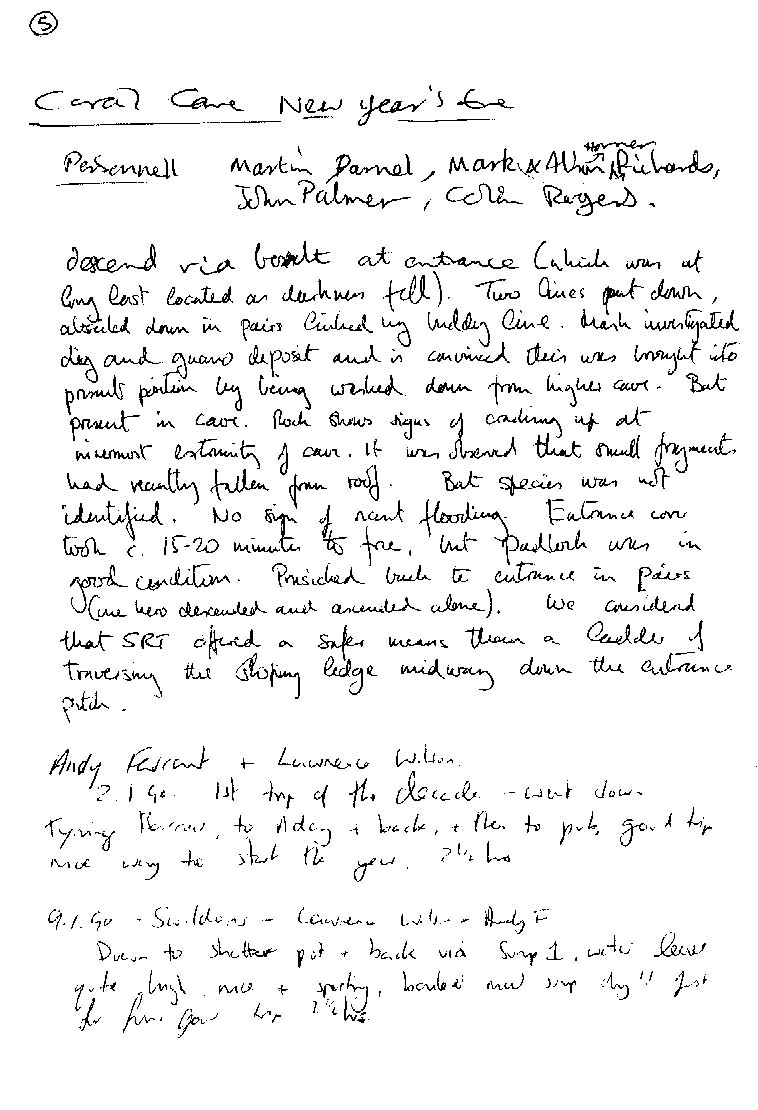 5
Coral Cave New Year's Eve
Personnell Martin Darnel, Mark & Alison Horner Richards,
John Palmer, Colin Rogers.
descend via boult at entrance (which was at
long last located as darkness fell). Two lines put down,
abseiled down in pairs linked by buddy line. Mark investigated
dig and guano deposit and is convinced this was brought into
present portion by being washed down from higher cave. Bat
present in cave. Rock shows signs of cracking up at
innermost extremity of cave. It was observed that small fragments
had recently fallen from roof. Bat species was not
identified. No sign of recent flooding. Entrance cover
took c. 15-20 minutes to free, but padlock was in
good condition. Prusicked back to entrance in pairs
(one hero descended and ascended alone). We considered
that SRT offered a safer means than a ladder of
traversing the sloping ledge midway down the entrance
pitch.
Andy Farrant + Lawrence Wilson
2.1.90. 1st trip of the decade - went down
Tyning Barrow, to Aday + back, + then to pub, good trip
nice way to start the year. 2½ hrs
9.1.90 - Swildons - Lawrence Wilson + Andy F
Down to Shatter pot + back via Sump 1, water levels
quite high, nice + sporting, mud sump dry!! Just
for fun. Good trip 2½ hrs.